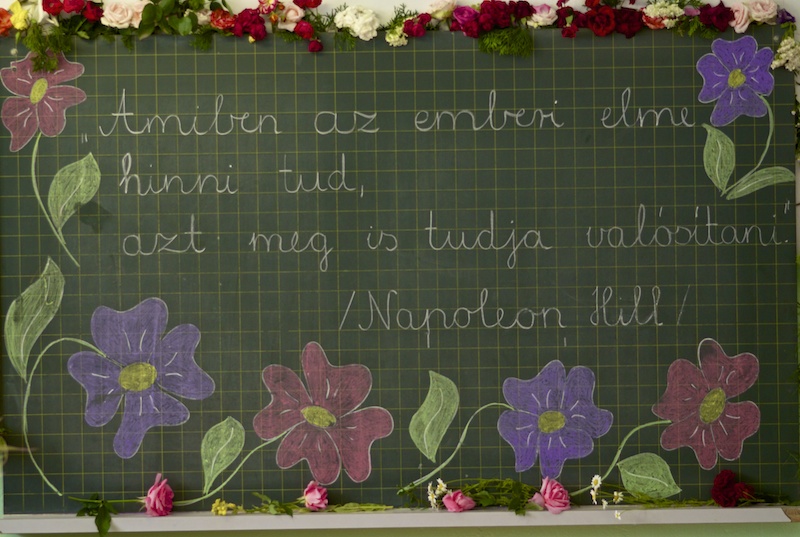 „Amiben az emberi elme
hinni tud,
azt meg is tudja valósítani."
/Napoleon Hill/